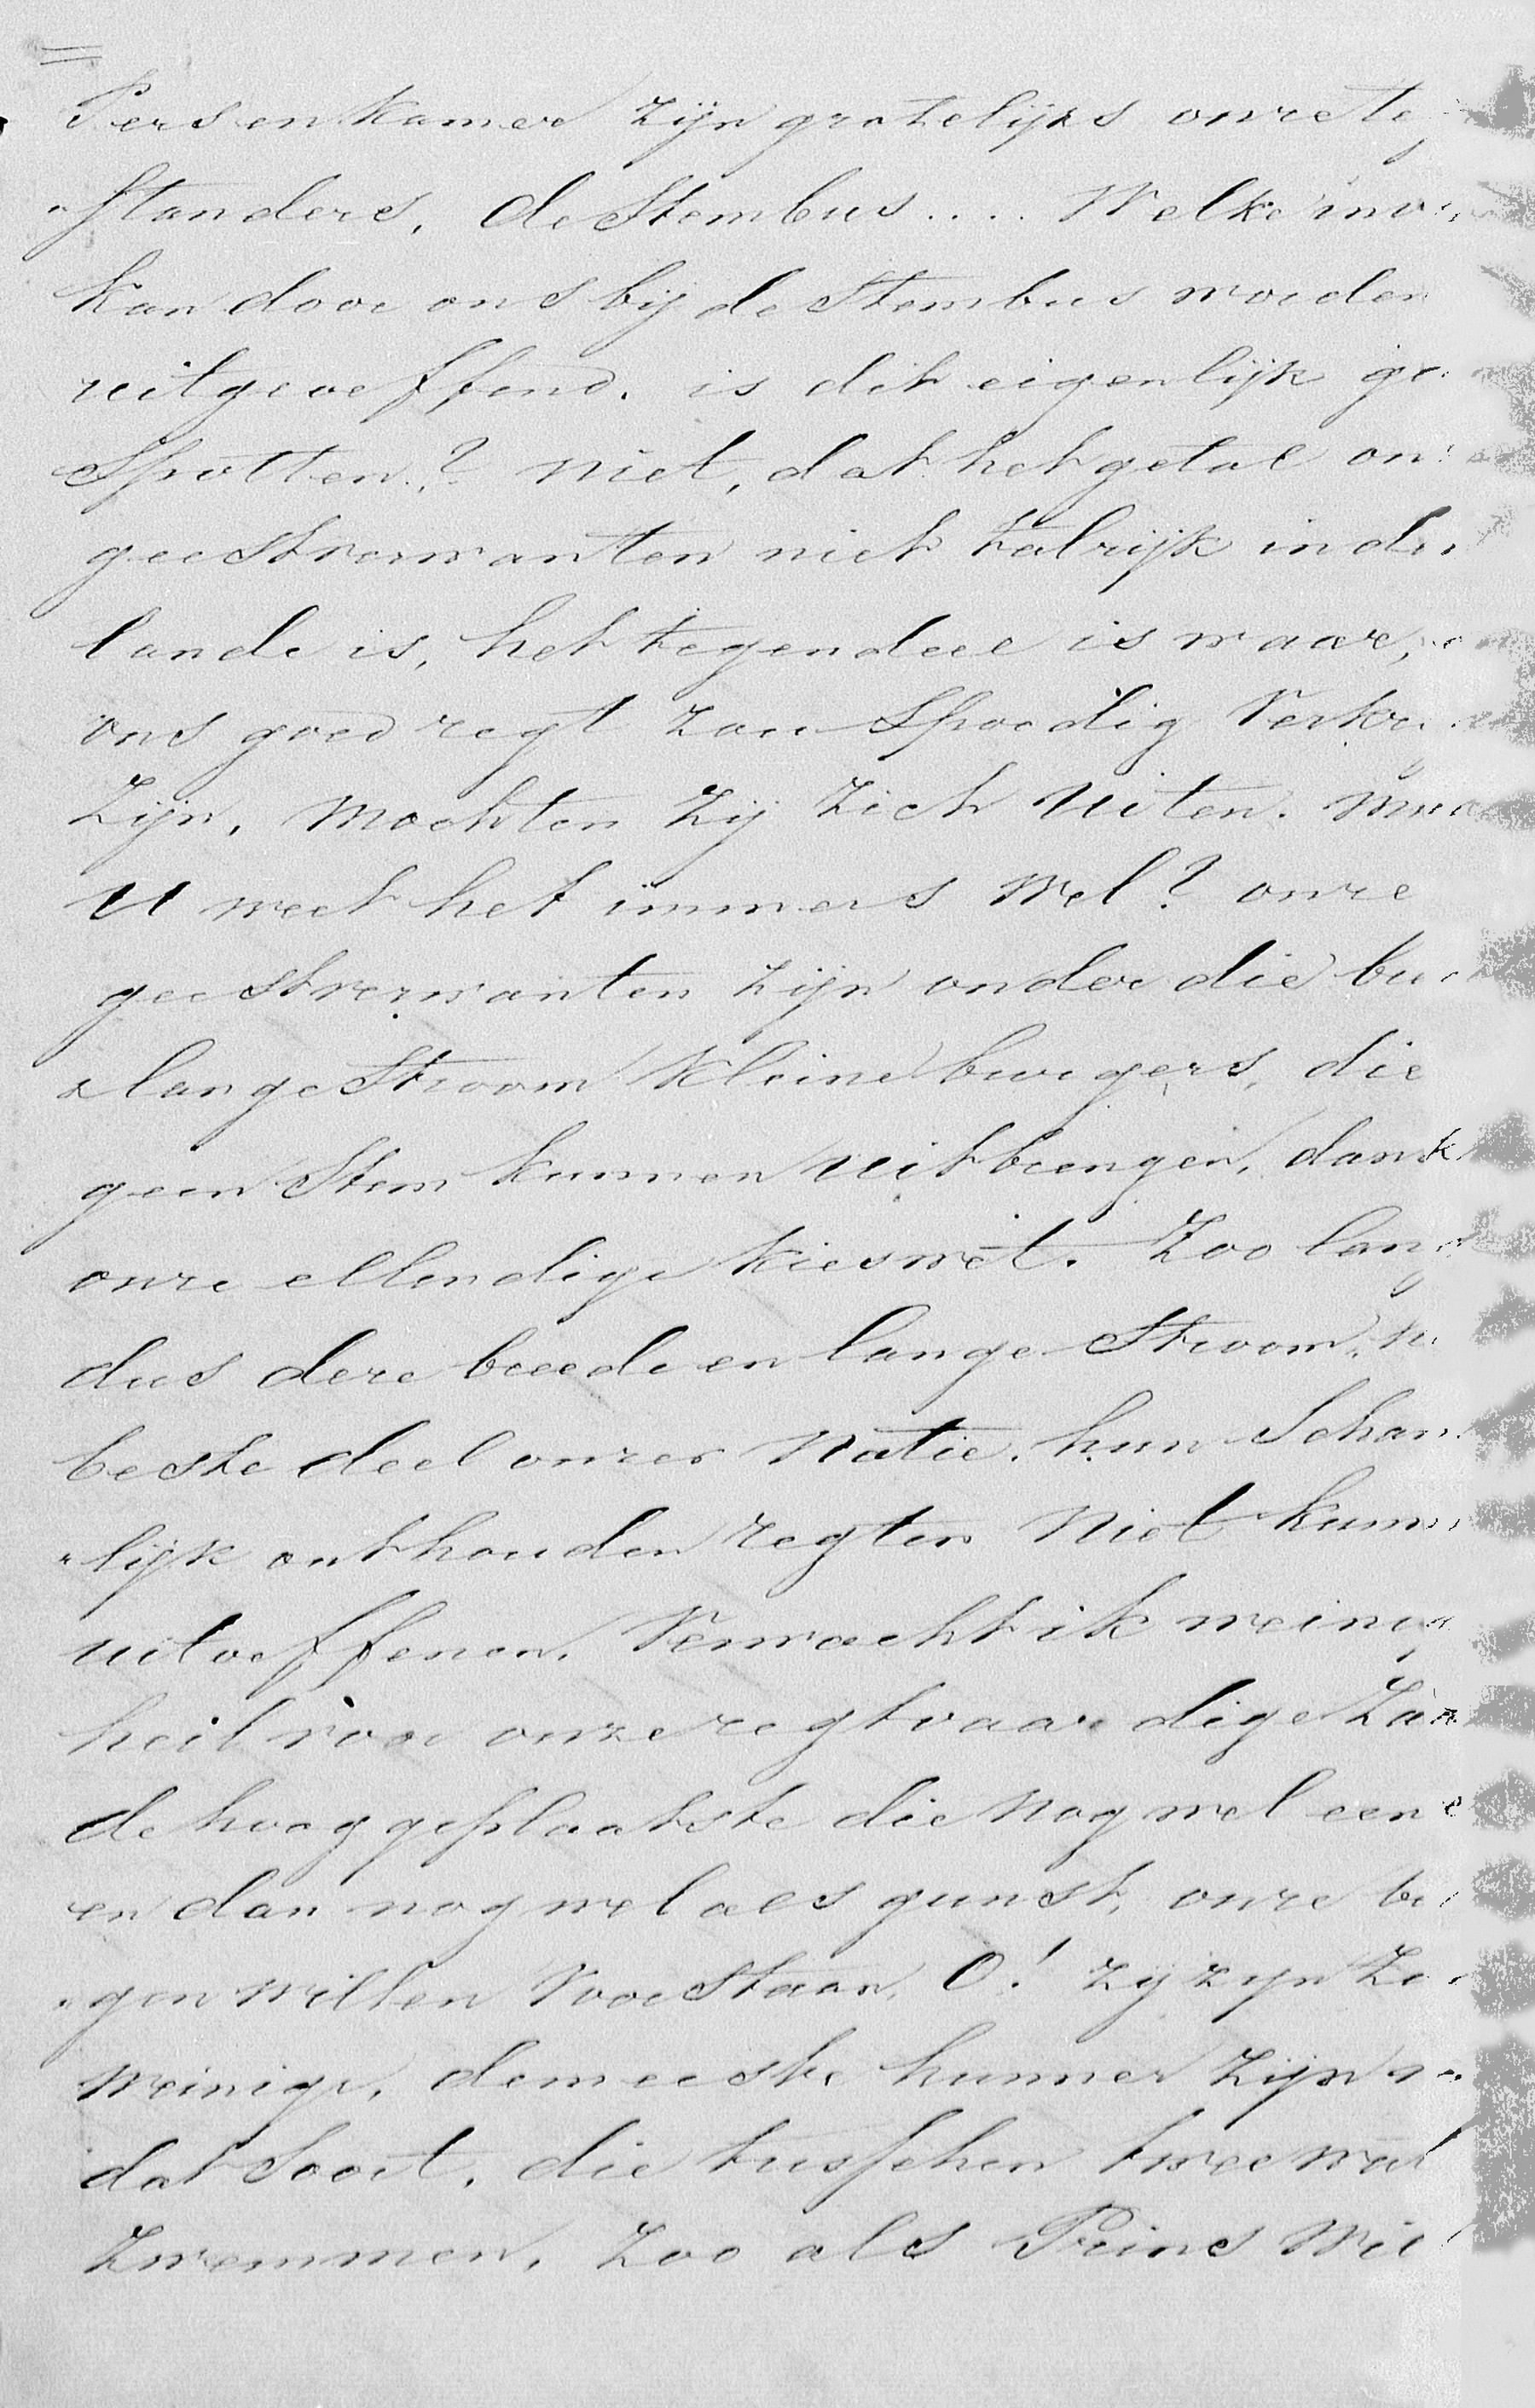 Pers en Kamer zijn grotelijks onze
„standers, de Stembus.... Welke
kan door ons bij de Stembus worden
uitgeoeffend. is dit eigenlijk
Spotten.? niet, dat het getal
geestverwanten niet talrijk in
lande is, het tegendeel is waar,
ons goed regt zou Spoedig
Zijn, mochten Zij Zich Uiten.
U weet het immers Wel? onze
geestverwanten zijn onder die
„lange Stroom Kleine burgers, die
geen Stem kunnen uitbrengen, dank
onze ellendige Kieswet. Zoo
dus deze breede en lange Stroom,
beste deel onzer Natie. hun
„lijk onthouden regten Niet
uitoeffenen, Verwacht ik
heil voor onze regtvaardige
de hoog geplaatste die Nog wel
en dan nog wel als gunst, onze
„gen willen VoorStaan, O! zij zijn
Weinige, de meeste hunner Zijn
dat Soort, die tusschen twee
Zwemmen, Zoo als Prins